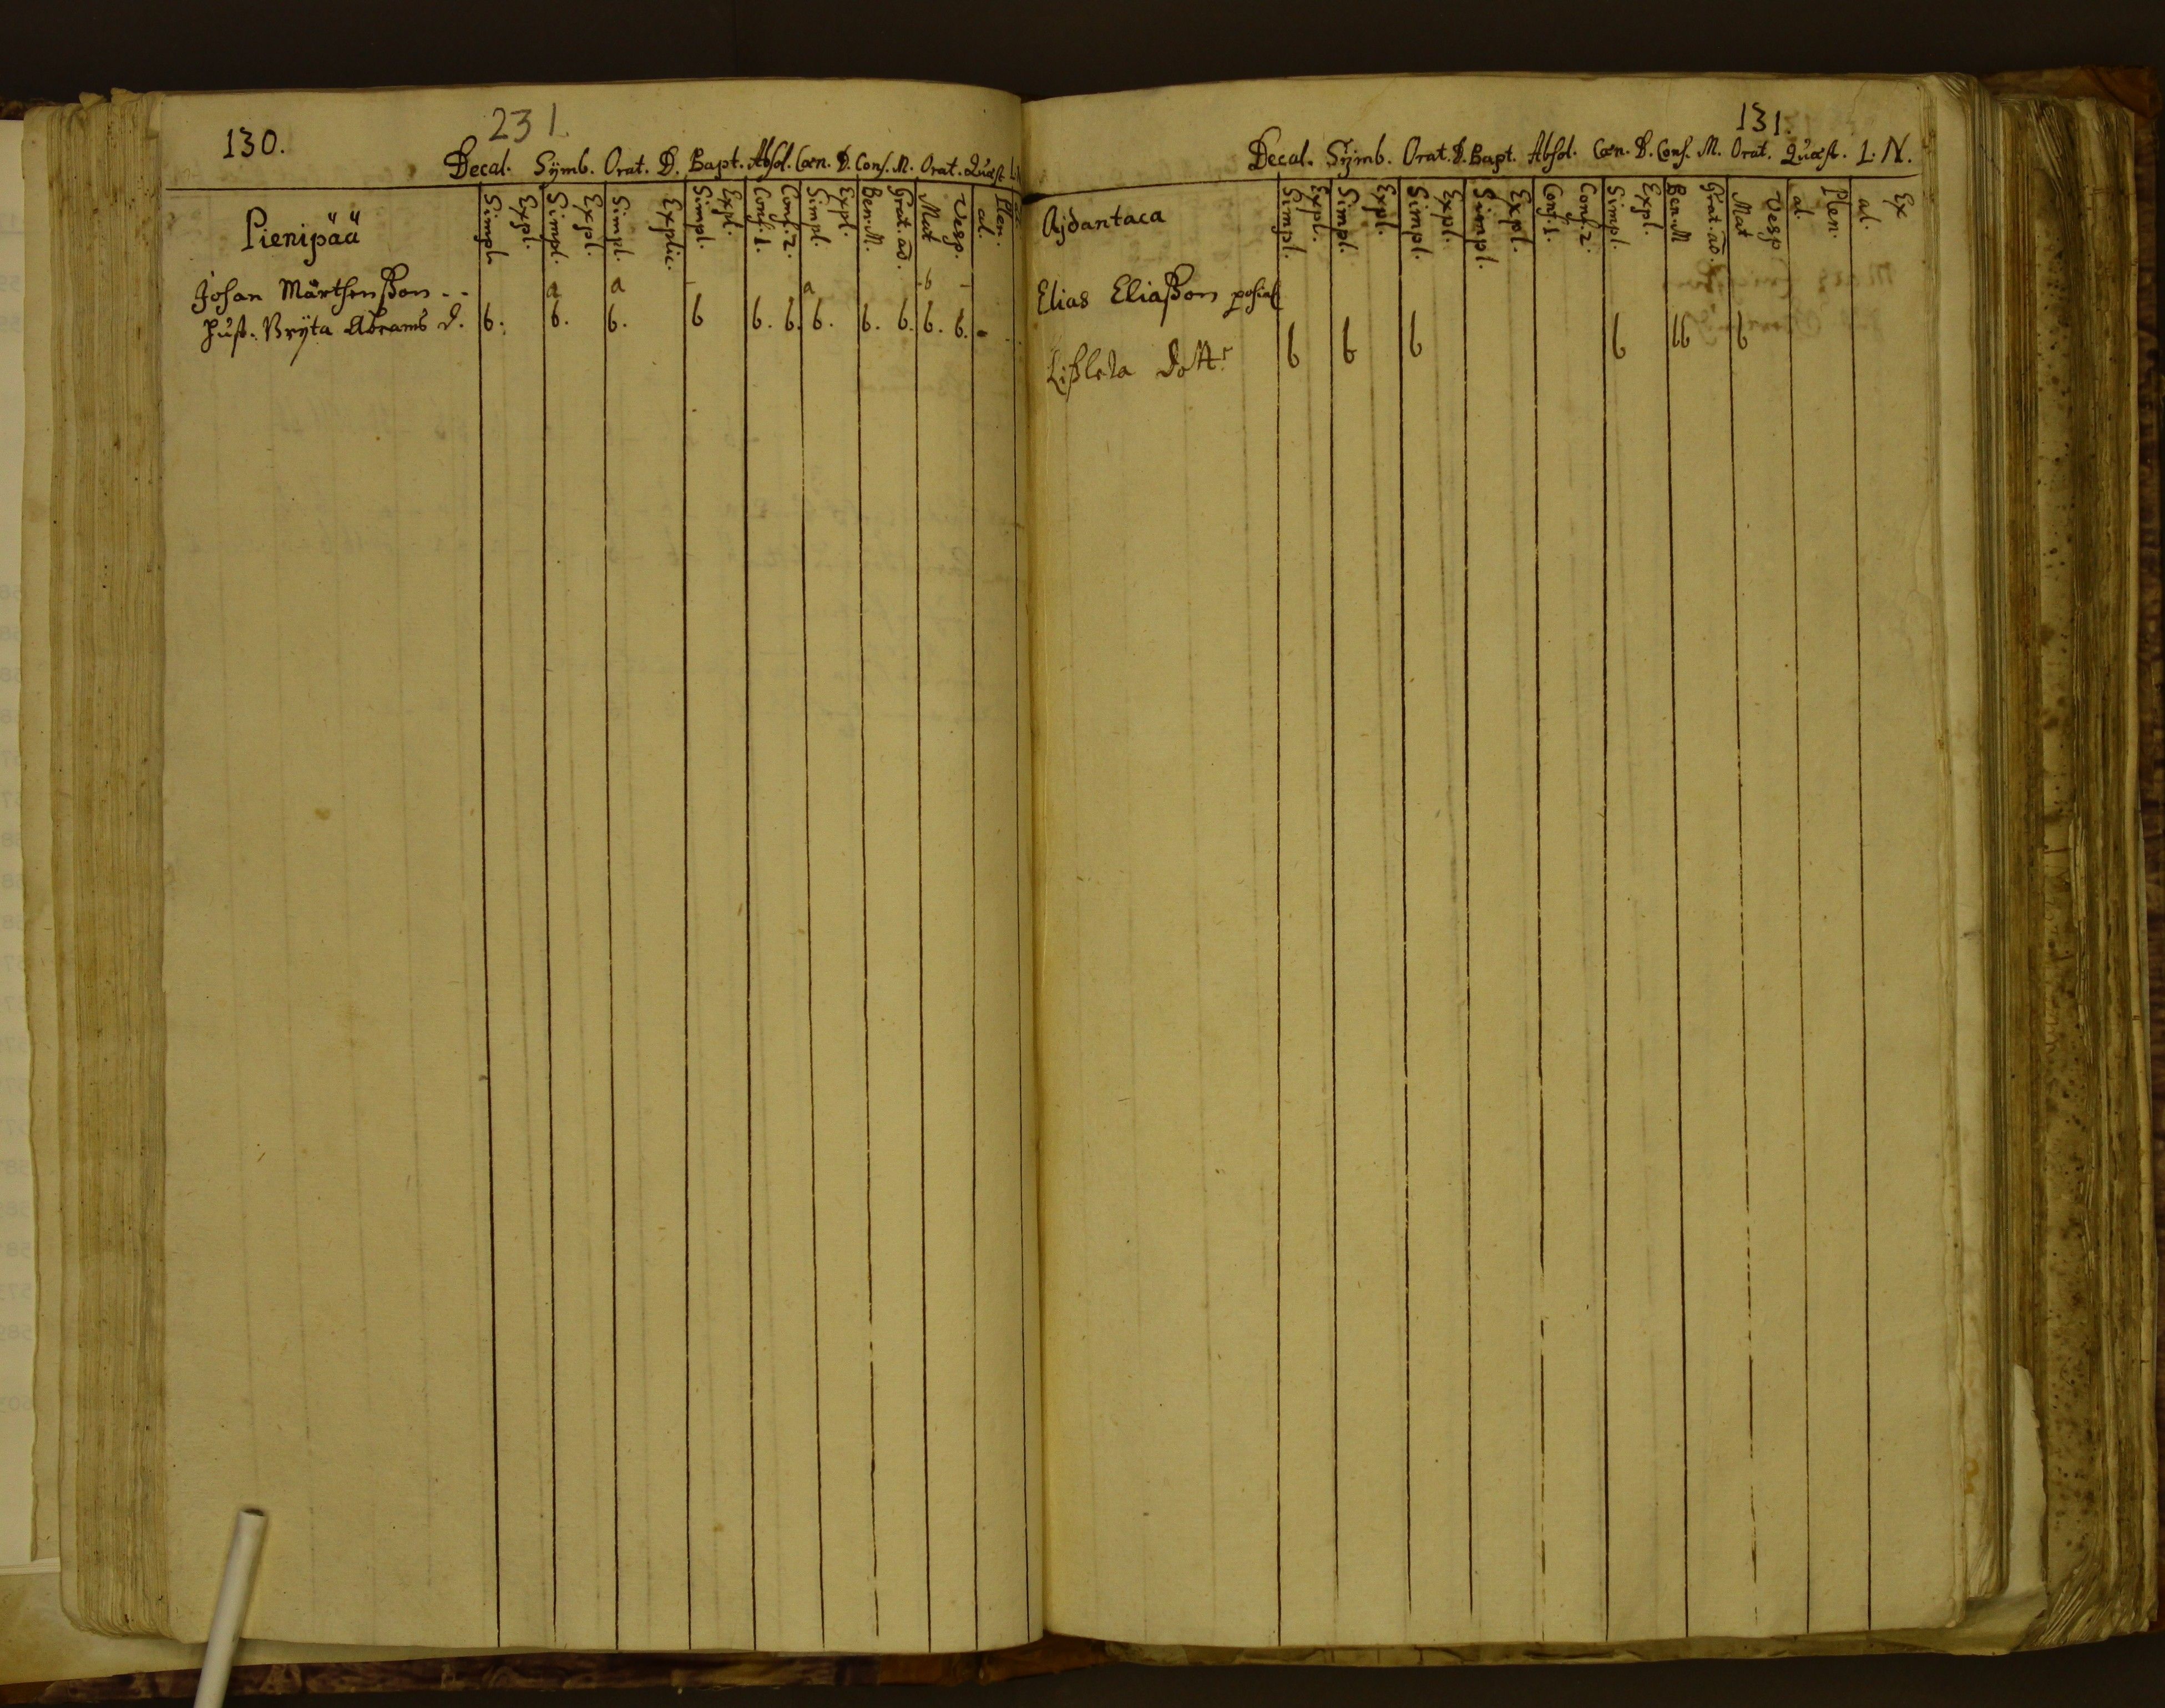 130.
231
Decal. Sÿmb. Orat. D. Bapt. Absol. Cœn. D. Conf. M. Orat. Quæst. L.N
Simpl. Expl. Simpl. Expl. Simpl. Explic. Simpl. Expl. Conf. 1. Conf. 2. Simpl. Expl. Ben. M. Grat. ad. Mat Vesp. al. Plen.
Pienipää
Johan Mårthenßon - - a a - a b -
Hust. Brÿta Abrams D. b. b. b. b b. b. b. b. b. b. b. -
131.
Decal. Sÿmb. Orat. D. Bapt. Absol. Cœn. D. Conf. M. Orat. Quæst. L. N.
Simpl. Expl. Simpl. Expl. Simpl. Expl. Simpl. Expl. Conf. 1. Conf. 2. Simpl. Expl. Ben. M Grat. ad. Mat Vesp al. Plen. al. Ex
Ajdantaca
Elias Eliaßon
Lißleta Dottr b b b b bb b